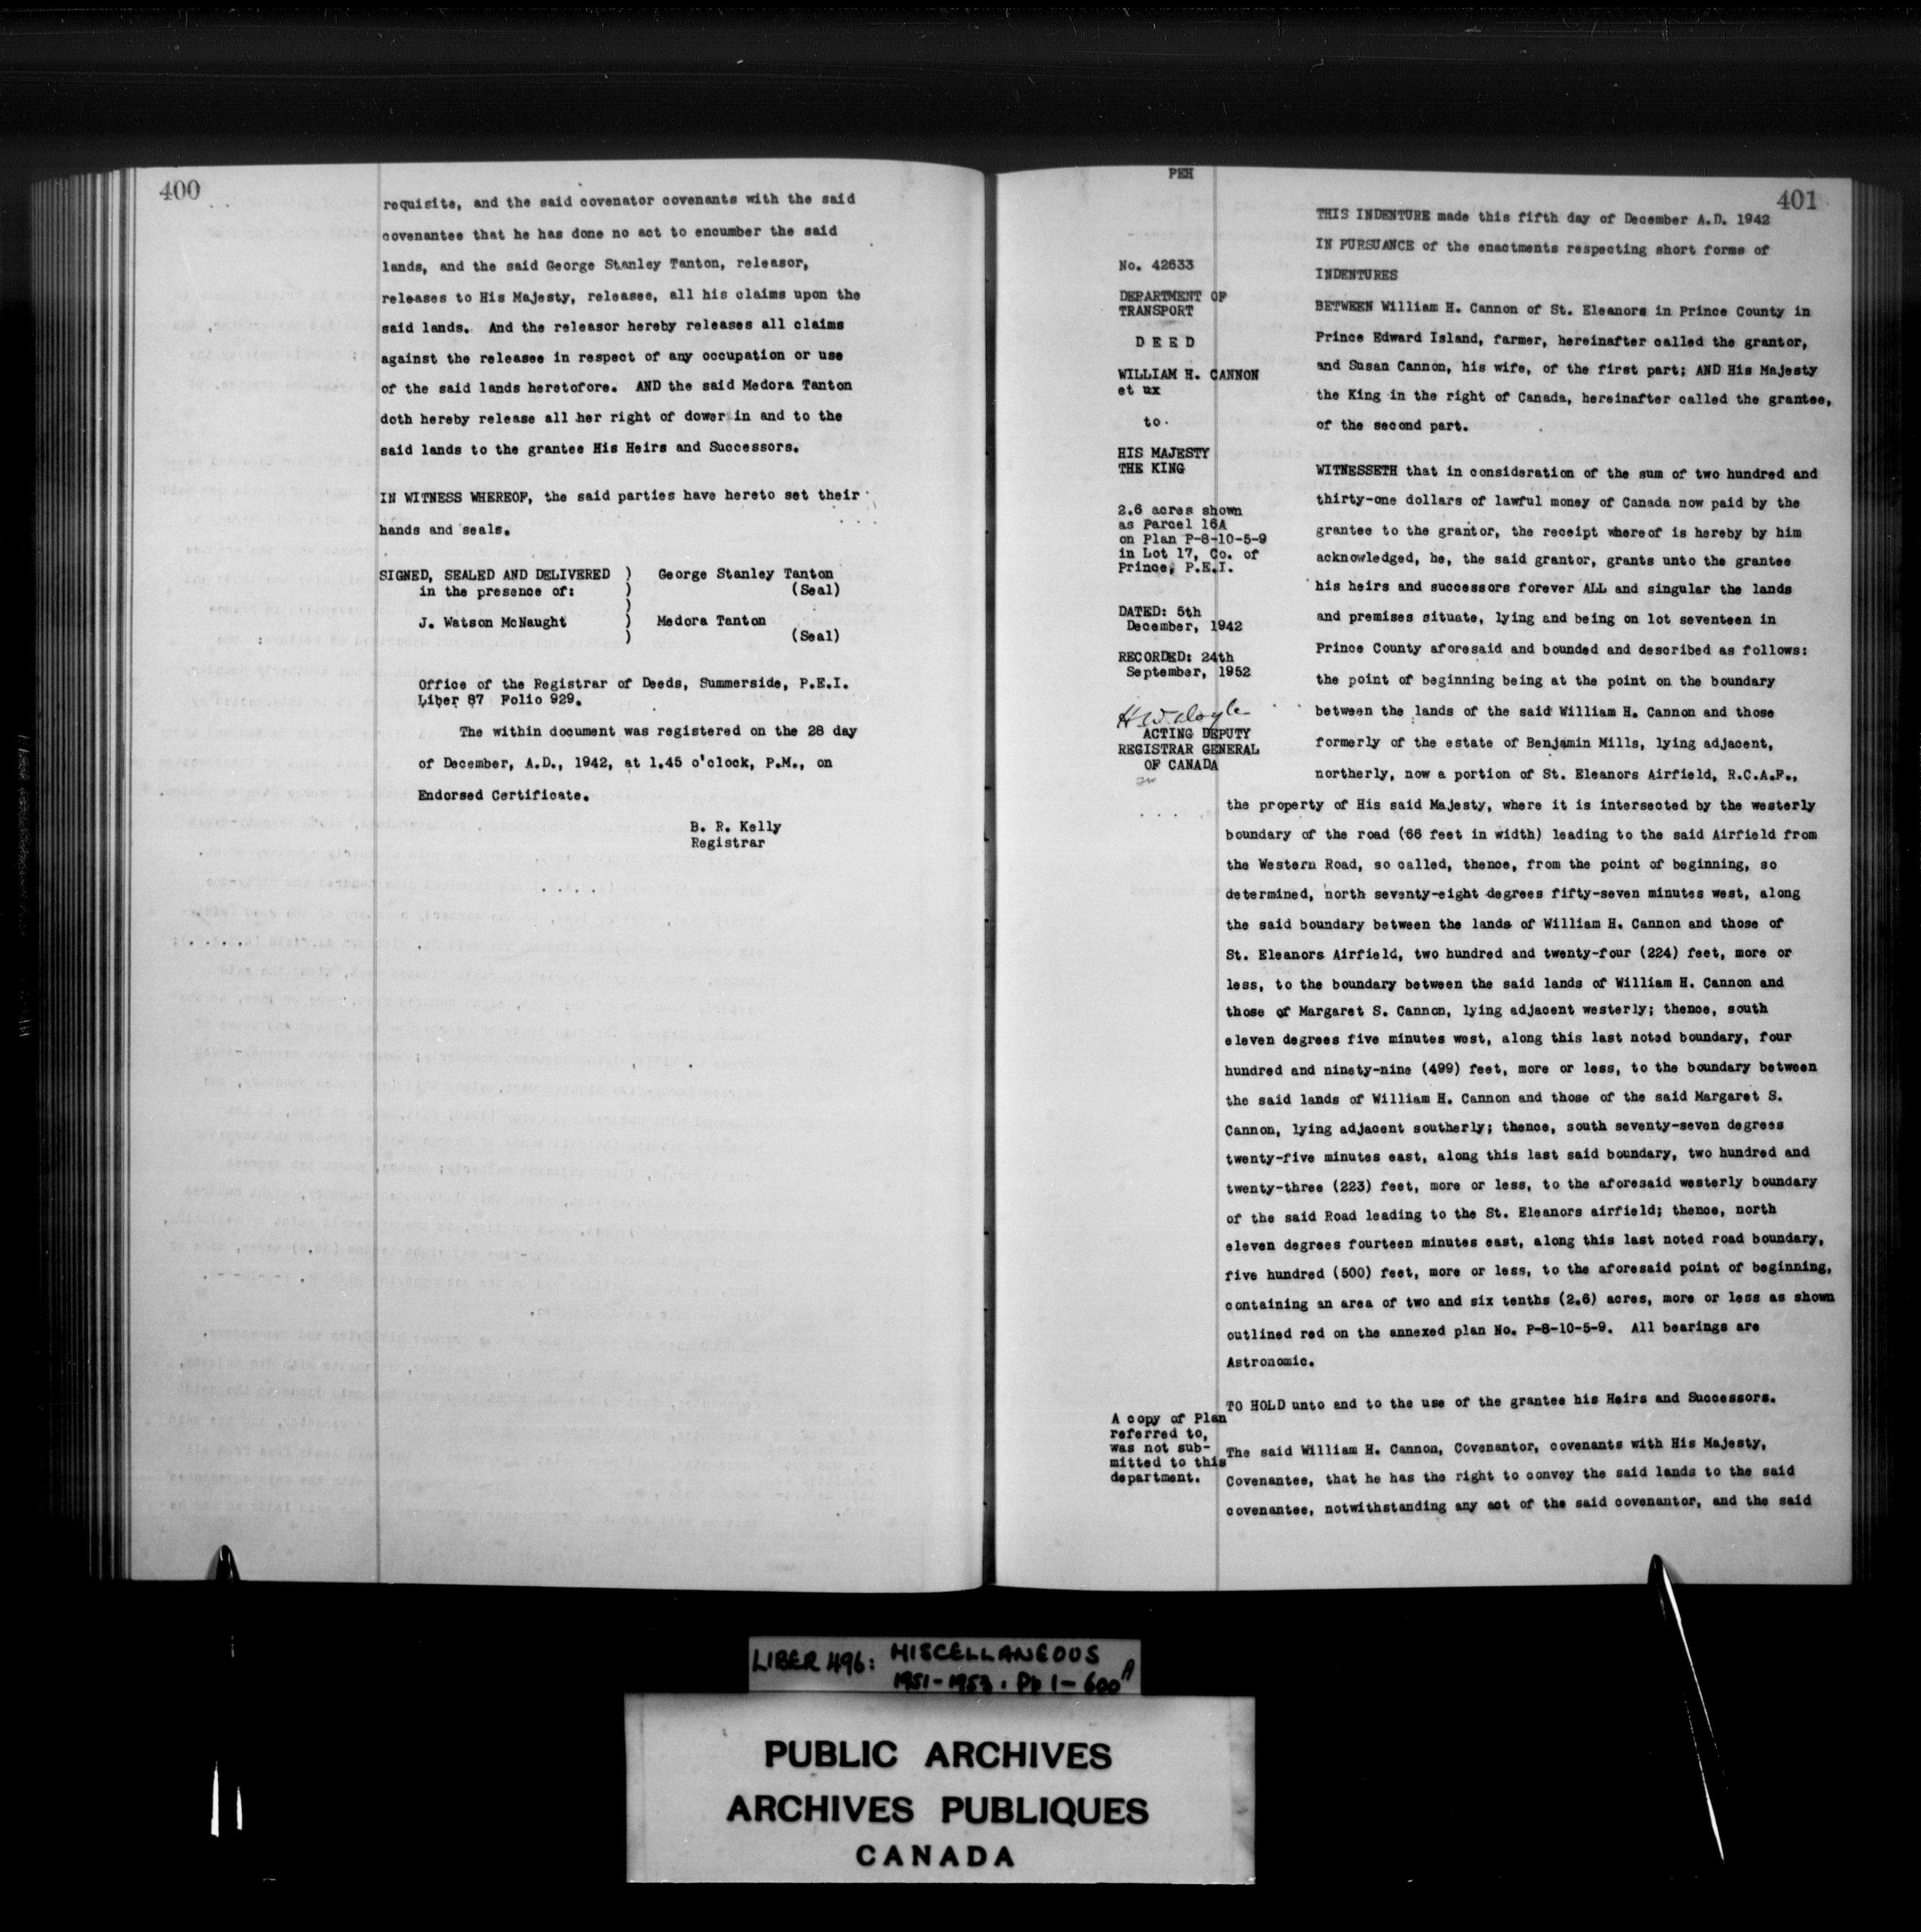 400
requisite, and the said covenator covenants with the said
covenantee that he has done no act to encumber the said
lands, and the said George Stanley Tanton, releasor,
releases to His Majesty, releasee, all his claims upon the
said lands. And the releasor hereby releases all claims
against the releasee in respect of any occupation or use
of the said lands heretofore. AND the said Medora Tanton
doth hereby release all her right of dower in and to the
said lands to the grantee His Heirs and Successors.
IN WITNESS WHEREOF, the said parties have hereto set their
hands and seals.
SIGNED, SEALED AND DELIVERED ) George Stanley Tanton
in the presence of: ) (Seal)
)
J. Watson McNaught ) Medora Tanton
) (Seal)
Office of the Registrar of Deeds, Summerside, P.E.I.
Liber 87 Folio 929.
The within document was registered on the 28 day
of December, A.D., 1942, at 1.45 o'clock, P.M., on
Endorsed Certificate.
B. R. Kelly
Registrar
PEH
401
No. 42633
DEPARTMENT OF
TRANSPORT
D E E D
WILLIAM H. CANNON
et ux
to
HIS MAJESTY
THE KING
2.6 acres shown
as Parcel 16A
on Plan P-8-10-5-9
in Lot 17, Co. of
Prince, P.E.I.
DATED: 5th
December, 1942
RECORDED: 24th
September, 1952
H W Doyle
ACTING DEPUTY
REGISTRAR GENERAL
OF CANADA
THIS INDENTURE made this fifth day of December A.D. 1942
IN PURSUANCE of the enactments respecting short forms of
INDENTURES
BETWEEN William H. Cannon of St. Eleanors in Prince County in
Prince Edward Island, farmer, hereinafter called the grantor,
and Susan Cannon, his wife, of the first part; AND His Majesty
the King in the right of Canada, hereinafter called the grantee,
of the second part.
WITNESSETH that in consideration of the sum of two hundred and
thirty-one dollars of lawful money of Canada now paid by the
grantee to the grantor, the receipt whereof is hereby by him
acknowledged, he, the said grantor, grants unto the grantee
his heirs and successors forever ALL and singular the lands
and premises situate, lying and being on lot seventeen in
Prince County aforesaid and bounded and described as follows:
the point of beginning being at the point on the boundary
between the lands of the said William H. Cannon and those
formerly of the estate of Benjamin Mills, lying adjacent,
northerly, now a portion of St. Eleanors Airfield, R.C.A.F.,
the property of His said Majesty, where it is intersected by the westerly
boundary of the road (66 feet in width) leading to the said Airfield from
the Western Road, so called, thence, from the point of beginning, so
determined, north seventy-eight degrees fifty-seven minutes west, along
the said boundary between the lands of William H. Cannon and those of
St. Eleanors Airfield, two hundred and twenty-four (224) feet, more or
less, to the boundary between the said lands of William H. Cannon and
those of Margaret S. Cannon, lying adjacent westerly; thence, south
eleven degrees five minutes west, along this last noted boundary, four
hundred and ninety-nine (499) feet, more or less, to the boundary between
the said lands of William H. Cannon and those of the said Margaret S.
Cannon, lying adjacent southerly; thence, south seventy-seven degrees
twenty-five minutes east, along this last said boundary, two hundred and
twenty-three (223) feet, more or less, to the aforesaid westerly boundary
of the said Road leading to the St. Eleanors airfield; thence, north
eleven degrees fourteen minutes east, along this last noted road boundary,
five hundred (500) feet, more or less, to the aforesaid point of beginning,
containing an area of two and six tenths (2.6) acres, more or less as shown
outlined red on the annexed plan No. P-8-10-5-9. All bearings are
Astronomic.
TO HOLD unto and to the use of the grantee his Heirs and Successors.
A copy of Plan
referred to,
was not sub-
mitted to this
department.
The said William H. Cannon, Covenantor, covenants with His Majesty,
Covenantee, that he has the right to convey the said lands to the said
covenantee, notwithstanding any act of the said covenantor, and the said
LIBER 496: MISCELLANEOUS
1951-1953. Pp 1-600A
PUBLIC ARCHIVES
ARCHIVES PUBLIQUES
CANADA